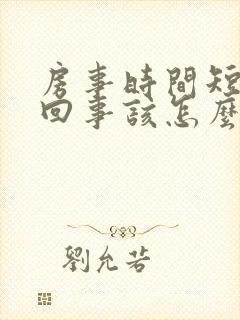 房事時間短
回事該怎麼
劉允若